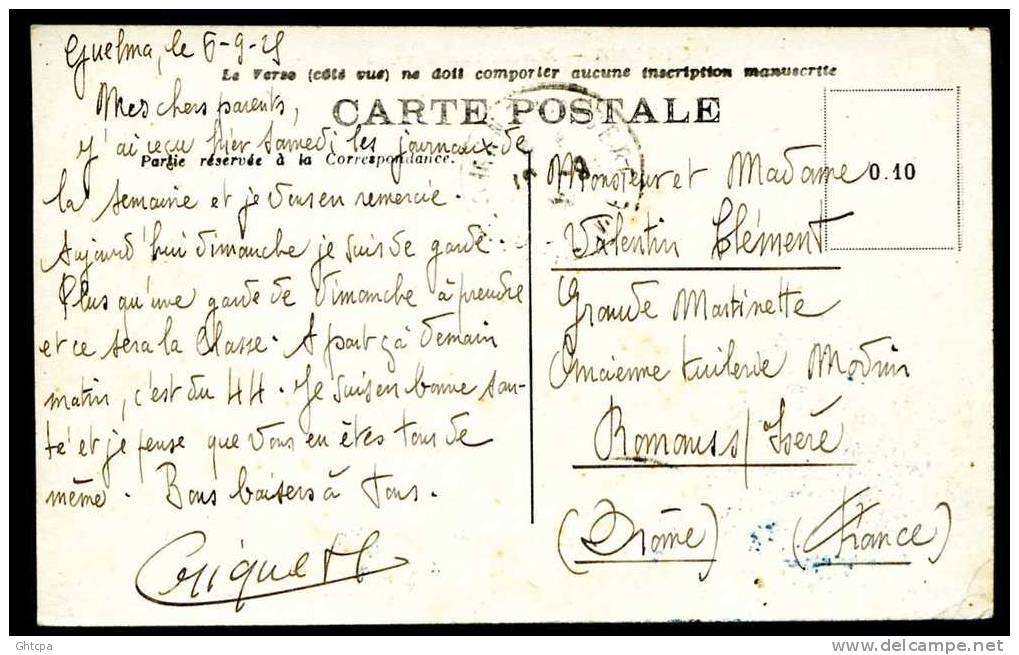 Guelma, le 6-9-25
Le Verso (côté vue) ne doit comporter aucune inscription manuscrite
CARTE POSTALE
Partie réservée à la Correspondance.
Mes chers parents,
J'ai reçu hier samedi les journaux de
la semaine et je vous en remercie.
Aujourd'hui dimanche je suis de garde.
Plus qu'une garde de dimanche à prendre
et ce sera la Classe. A part çà demain
matin, c'est du 44. Je suis en bonne san-
té et je pense que vous en êtes tous de
même. Bons baisers à tous.
0.10
Monsieur et Madame
Valentin Clément
Grande Martinette
Ancienne tuilerie
Romans s/ Isère
(Drôme) (France)
Ghtcpa
www.delcampe.net